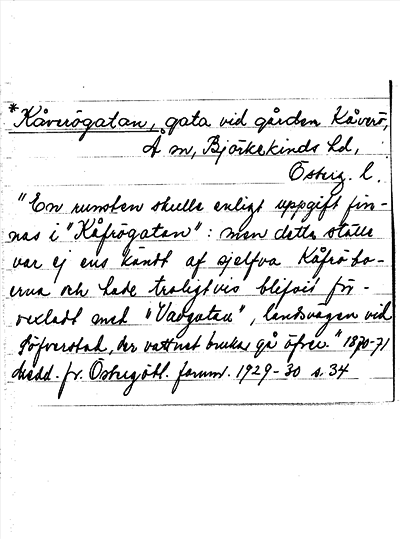 *Kåverögatan, gata vid gården Kåverö,
Å sn, Björkekinds hd,
Österg. l.
"En runsten skulle enligt uppgift fin-
nas i "Kåfrögatan": men detta ställe
var ej ens kändt af sjelfva Kåfröbo-
erna och hade troligtvis blifvit för-
vexladt med "Vadgatan", landsvägen vid
Töfverstad, der vattnet brukar gå öfver." 1870-71
Medd. fr. Östergötl. fornm. 1929-30 s. 34